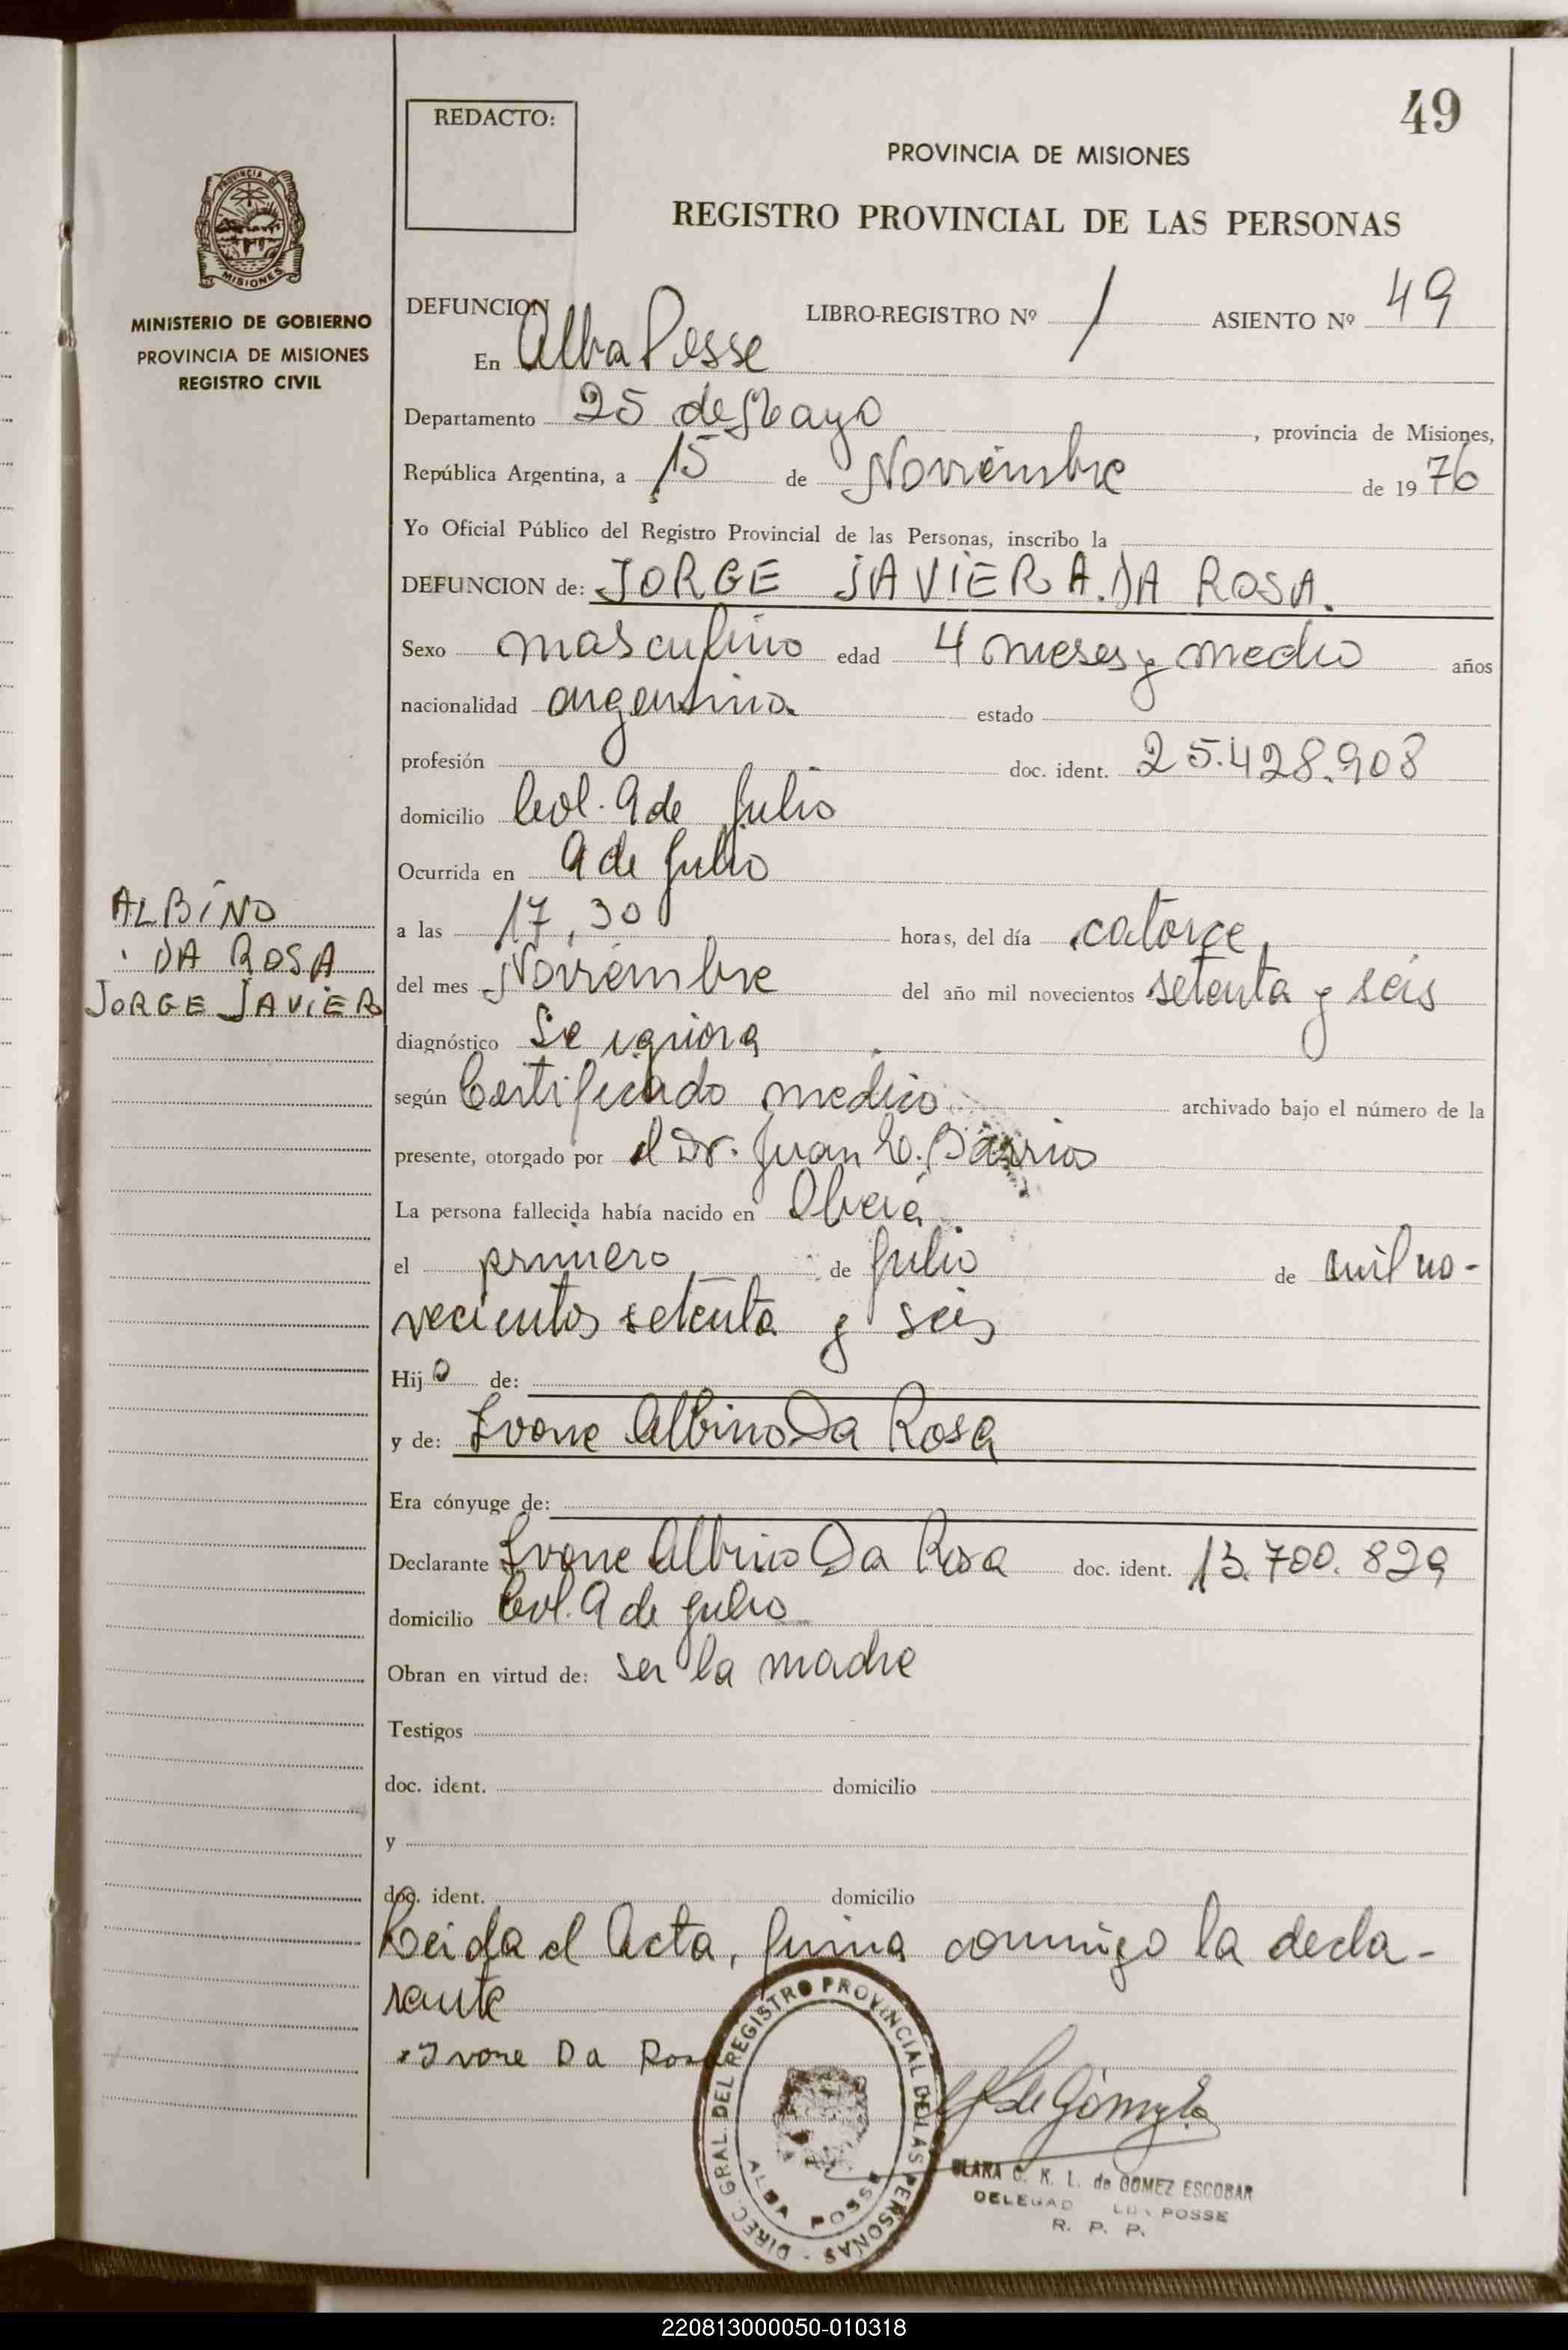 49
REDACTO:
PROVINCIA DE MISIONES
REGISTRO PROVINCIAL DE LAS PERSONAS
PROVINCIA DE
MISIONES
MINISTERIO DE GOBIERNO
PROVINCIA DE MISIONES
REGISTRO CIVIL
DEFUNCION LIBRO-REGISTRO Nº 1 ASIENTO Nº 49
En Alba Posse
Departamento 25 de Mayo, provincia de Misiones,
República Argentina, a 15 de Noviembre de 1976
Yo Oficial Público del Registro Provincial de las Personas, inscribo la
DEFUNCION de: JORGE JAVIER A. DA ROSA.
Sexo masculino edad 4 meses y medio años
nacionalidad argentina estado
profesión doc. ident. 25.428.908
domicilio Col. 9 de Julio
Ocurrida en 9 de Julio
a las 17,30 horas, del día catorce
del mes Noviembre del año mil novecientos setenta y seis
diagnóstico Se ignora
según Certificado medico archivado bajo el número de la
presente, otorgado por el Dr. Juan C. Barrios
La persona fallecida había nacido en Oberá
el primero de Julio de mil no-
vecientos setenta y seis
Hijo de:
y de: Ivone Albino Da Rosa
Era cónyuge de:
Declarante Ivone Albino Da Rosa doc. ident. 13.700.829
domicilio Col. 9 de julio
Obran en virtud de: ser la madre
Testigos
doc. ident. domicilio
y
doc. ident. domicilio
Leida el Acta, firma conmigo la decla-
rante
Ivone Da Rosa
ALBINO
DA ROSA
JORGE JAVIER
DIREC. GRAL. DEL REGISTRO PROVINCIAL DE LAS PERSONAS
ALBA POSSE
CLARA C. K. L. de GOMEZ ESCOBAR
DELEGAD POSSE
R. P. P.
220813000050-010318